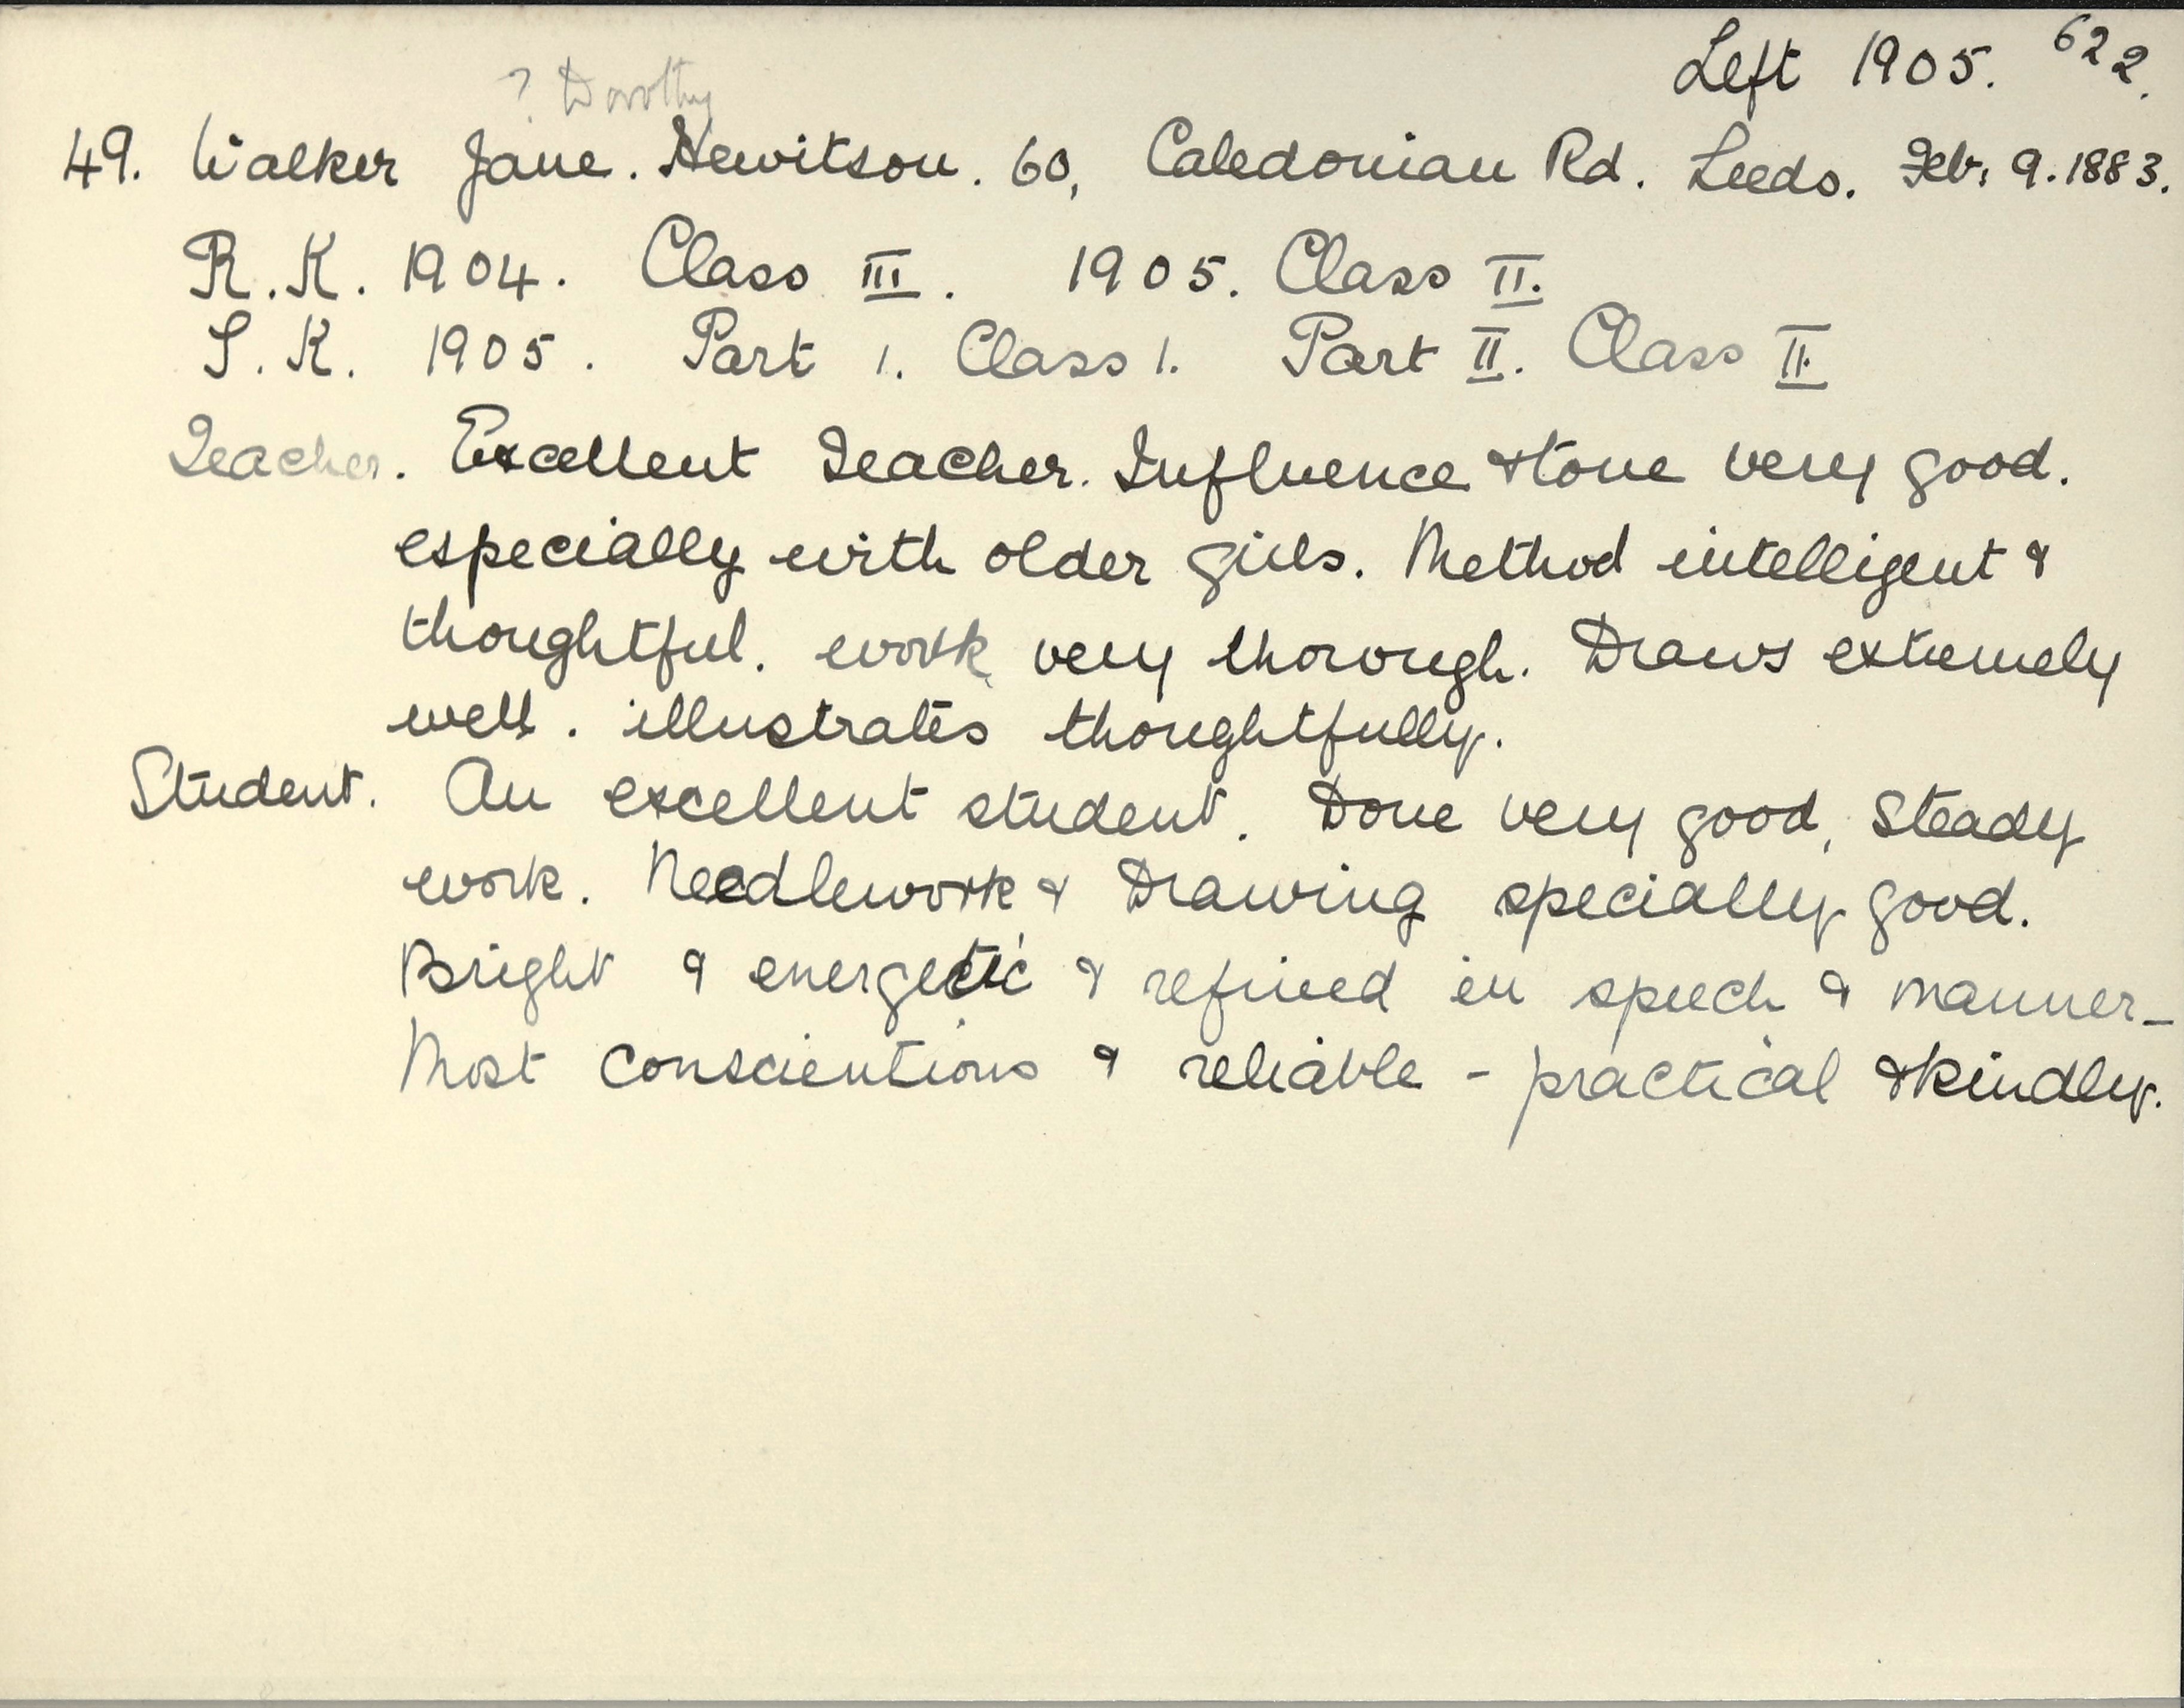 Left 1905. 622.
? Dorothy
49. Walker Jane. Hewitson. 60, Caledonian Rd. Leeds. Feb. 9. 1883.
R.K. 1904. Class III. 1905. Class II.
S.K. 1905. Part 1. Class 1. Part II. Class II
Teacher. Excellent Teacher. Influence & tone very good.
especially with older girls. Method intelligent &
thoughtful. work very thorough. Draws extremely
well. illustrates thoughtfully.
Student. An excellent student. Done very good, steady
work. Needlework & Drawing specially good.
Bright & energetic & refined in speech & manner_
Most conscientious & reliable - practical & kindly.